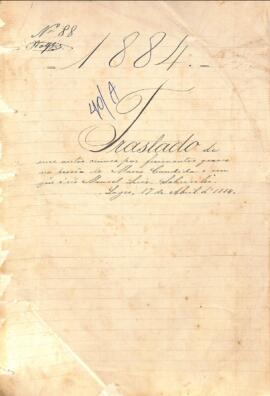 Nº 88
- 1884. -
40/A
Traslado de
uns autos crimes por ferimentos graves
na pessôa de Maria Candida e em
que é réo Manoel Luis
Lages, 17 de Abril de 1884.